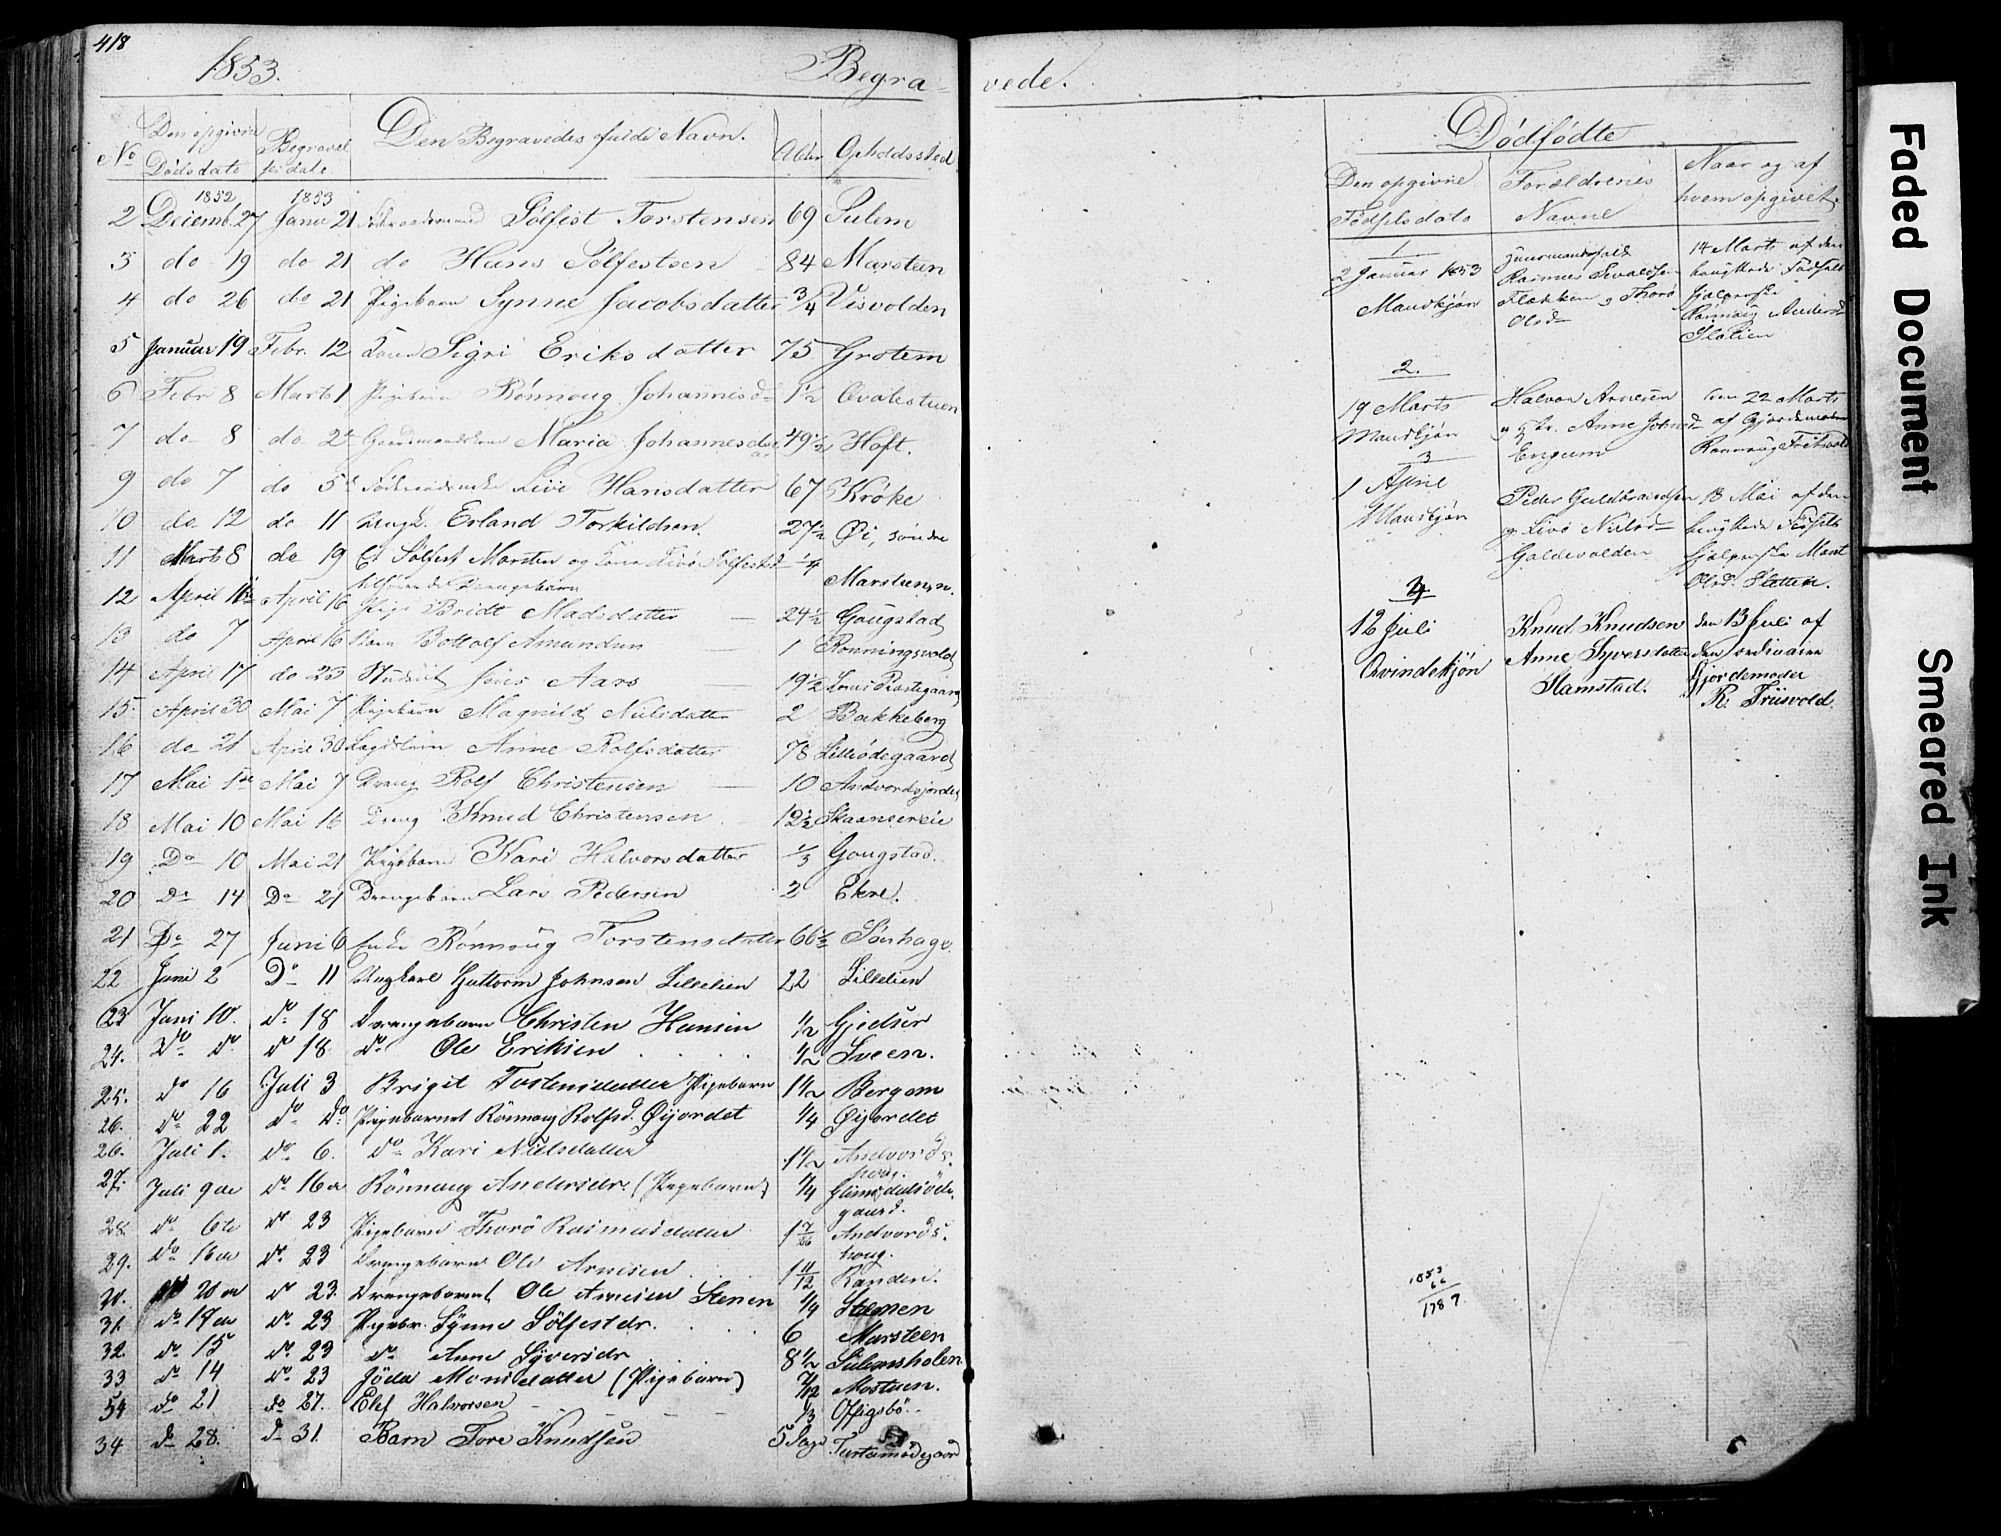 418
1853. Begravede.
No Den opgivne Dödsdato Begravelsesdato Den Begravedes fulde Navn. Alder Opholdssted
1852 1853
2 Decemb. 27 Janu 21 Sölfest Torstensen 69 Sulem
3 do 19 do 21 do Hans Sölfestsen 84 Marsteen
4 do 26 do 21 Pigebarn Synne Jacobsdatter 3/4 Visvolden
5 Januar 19 Febr. 12 Kone Sigri Eriksdatter 75 Grotem
6 Febr 8 Marts 1 Pigebarn Rönnoug Johannesd 1 1/2 Qvalestuen
7 do 8 do 2 Maria Johannesdat 49 1/2 Hoft.
9 do 7 do 5 Hansdatter 67 Kröke
10 do 12 do 11 Ungk. Erland Torkildsen. 27 1/2 Öi, söndre
11 Marts 8 do 19 Et Sölfest Marsten og Kone Sölfestsd 1/4 Marsteen, n.
Drengebarn
12 April 11te April 16 Pige Bridt Madsdatter 24 1/2 Gougstad
13 do 7 April 16 Barn Bottolf Amundsen 1 Rönningsvold
14 April 17 do 23 Student Jens Aars 19 1/2 Præstegaard
15. April 30 Mai 7 Pigebarn Magnild Nielsdatter 2 Bakkeberg
16 do 21 April 30 Anne Rolfsdatter 78 Lilleödegaard
17 Mai 1ste Mai 7 Dreng Rolf Christensen 10 Andvordsjordet
18 Mai 10 Mai 16 Dreng Knud Christensen 12 1/2 Skaansereie
19 Do 10 Mai 21 Pigebarn Kari Halvorsdatter 1/3 Gougstad.
20 Do 14 Do 21 Drengebarn Lars Pedersen 2 Ekre.
21 Do 27 Juni 6 Enke Rönnoug Torstensdatter 66 1/2 Sörhage.
22 Juni 2 Do 11 Ungkarl Guttorm Johnsen Lillelien 22 Lillelien
23 Juni 10. do 18 Drengebarn Christen Hansen 1/2 Gjedser
24. do do do 18 do Ole Eriksen 1/2 Sveen.
25. do 16 Juli 3 Brigit Tostensdatter Pigebarn 1 1/2 Bergom
26. do 22 do do Pigebarnet Rönnoug Rolfsd. Öijordet 1/4 Öijordet
26. Juli 1. do 6. do Kari Nielsdatter 1 1/2 Andvordshoug.
27. Juli 9de do 16de Rönnoug Andersdr. (Pigebarn) 1/4
28. do 6te do 23 Pigebarn Thorö Rasmusdatter 1 Andvordshoug.
29. do 16de do 23 Drengebarn Ole Arnesen 1 11/12 Randen.
30. do 20de do 23. Drengebarnet Ole Arnesen Stenen 1/4 Stenen
31. do 17de do 23 Pigebr. Synne Sölfestdr. 6 Marsteen
32. do 15 do 23 do Anne Syversdr 8 1/2 Sulemsholen
33 do 14 do 23 Jöda Monsdatter (Pigebarn) 7/12 Mostuen.
54 do 21 do 27. Elef Halvorsen 1/3 Offigsbö.
34 do 28. do 31. Barn Tore Knudsen 5 Dage
Dödfödte
Den opgivne Födselsdato Forældrenes Navne Naar og af hvem opgivet.
1
2 Januar 1853 Mandkjön
Gaardmandsfolk Rasmus Sivaldsen Flækken og Thorö Olsd
14 Marts af den benyttede Födselshjælperske Rönnoug Andersd
2.
19 Marts Mandkjön
Halvor Arnesen og Anne Johnsd Engum
den 22 Marts af Gjordemoder Rönnoug Friisvold
3
1 April Mandkjön
Peder Guldbrandsen og Livö Nielsd Galdevolden
18 Mai af den benyttede Födselshjælperske Marit Olsd. Slatten.
4
12 Juli Qvindekjön
Knud Knudsen Anne Syversdatter Hamstad.
den 13 Juli af den ordinaire Gjordemoder R. Friisvold.
1853
66
1787
Faded Document
Smeared Ink